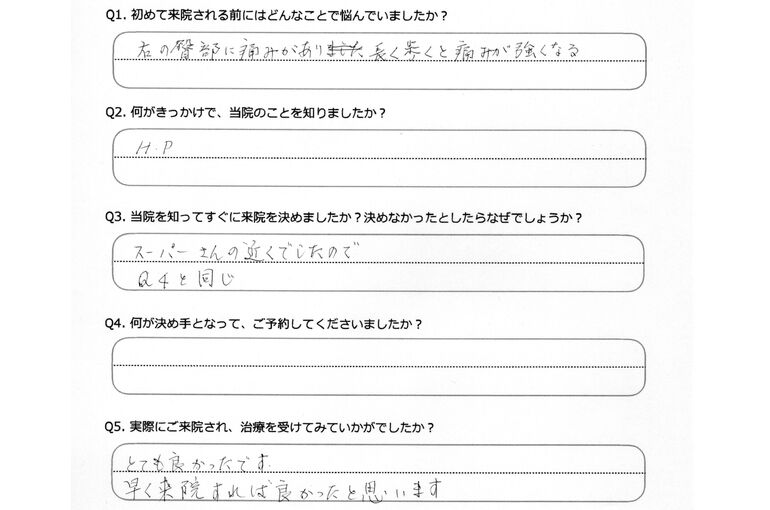 Q1. 初めて来院される前にはどんなことで悩んでいましたか？
右の臀部に痛みがありました 長く歩くと痛みが強くなる
Q2. 何がきっかけで、当院のことを知りましたか？
H.P
Q3. 当院を知ってすぐに来院を決めましたか？決めなかったとしたらなぜでしょうか？
スーパーさんの近くでしたので
Q4と同じ
Q4. 何が決め手となって、ご予約してくださいましたか？
Q5. 実際にご来院され、治療を受けてみていかがでしたか？
とても良かったです.
早く来院すれば良かったと思います